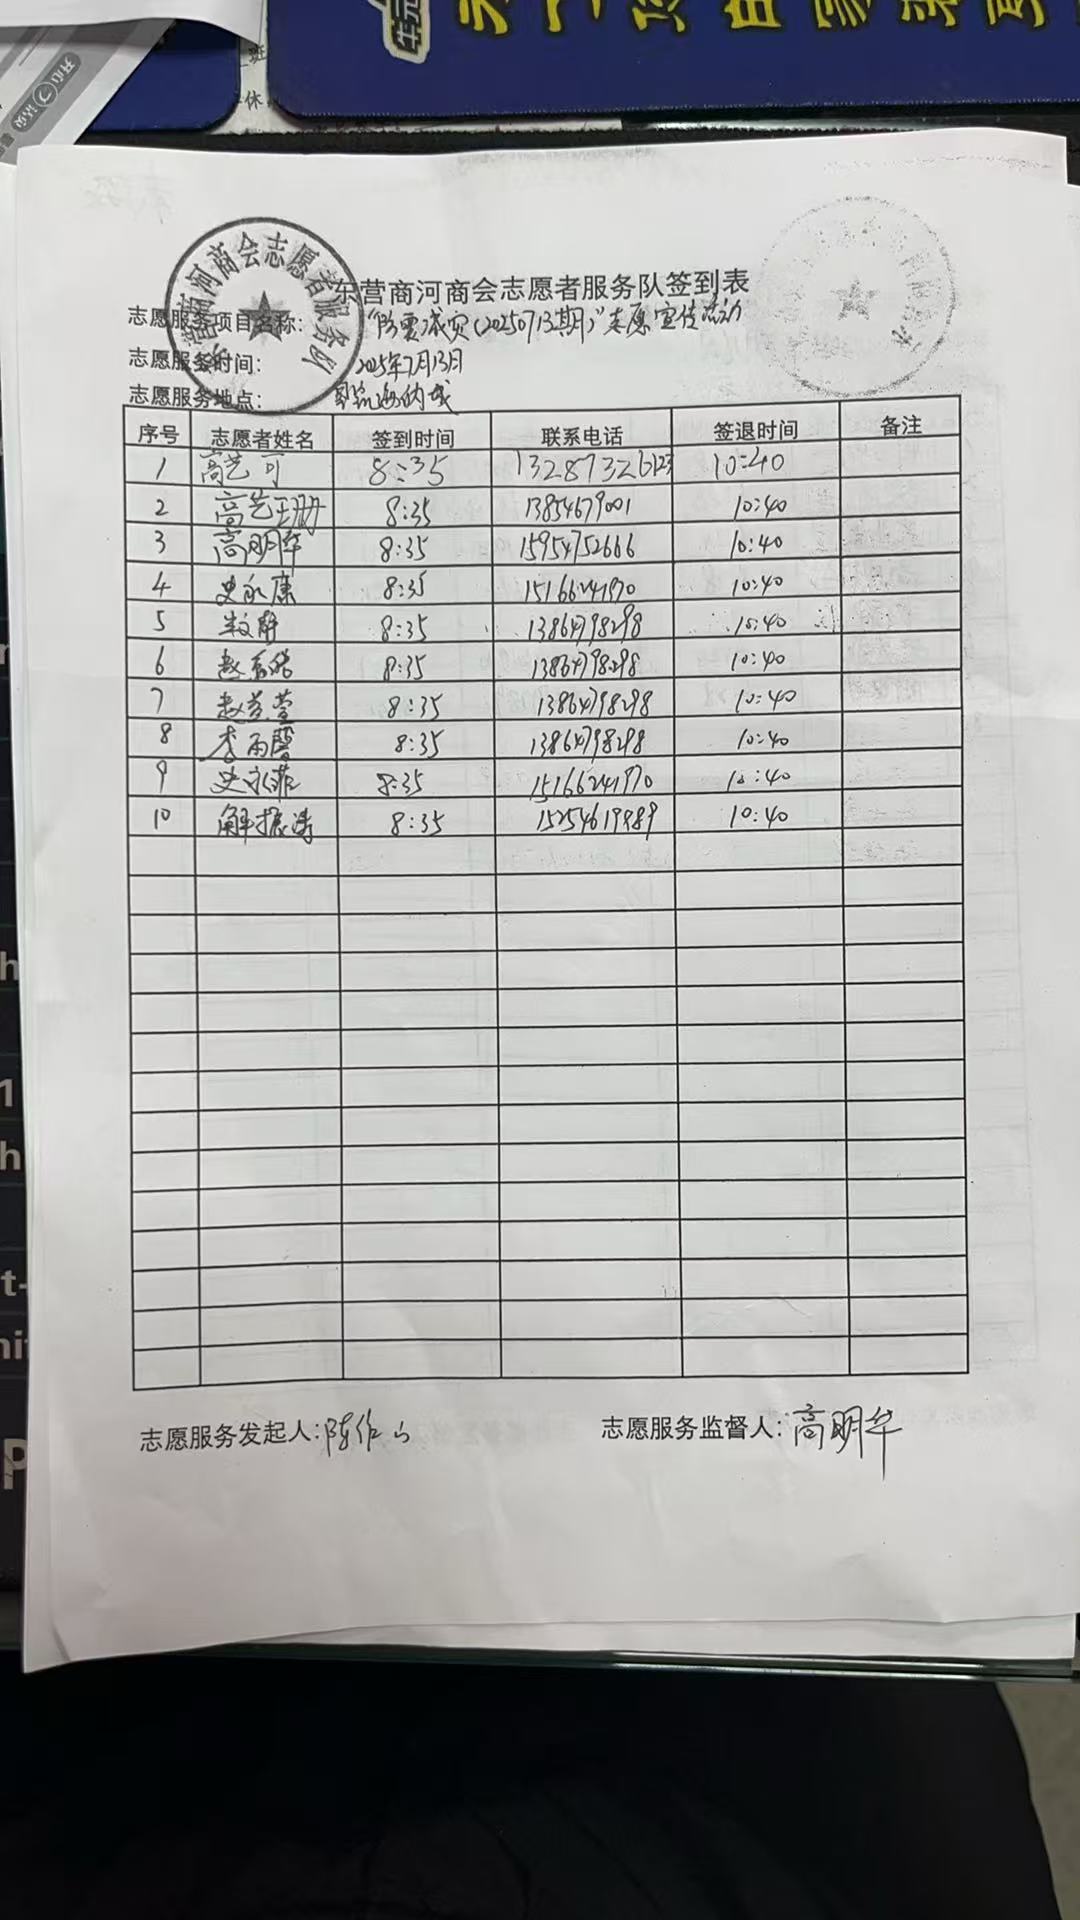 班
休
开心
东营商河商会志愿者服务队签到表
商河商会志愿者服务队
志愿服务项目名称: "防震减灾(20250713期)"志愿宣传活动
志愿服务时间: 2025年7月13日
志愿服务地点: 海纳城
序号 志愿者姓名 签到时间 联系电话 签退时间 备注
1 高艺可 8:35 13287326123 10:40
2 高艺珊 8:35 13854679001 10:40
3 高明华 8:35 15954752666 10:40
4 史永康 8:35 15166241970 10:40
5 8:35 13864798298 10:40
6 赵 8:35 13864798298 10:40
7 赵 萱 8:35 13864798298 10:40
8 李雨馨 8:35 13864798298 10:40
9 史永菲 8:35 15166241970 10:40
10 解振涛 8:35 15254619989 10:40
志愿服务发起人: 陈作山 志愿服务监督人: 高明华